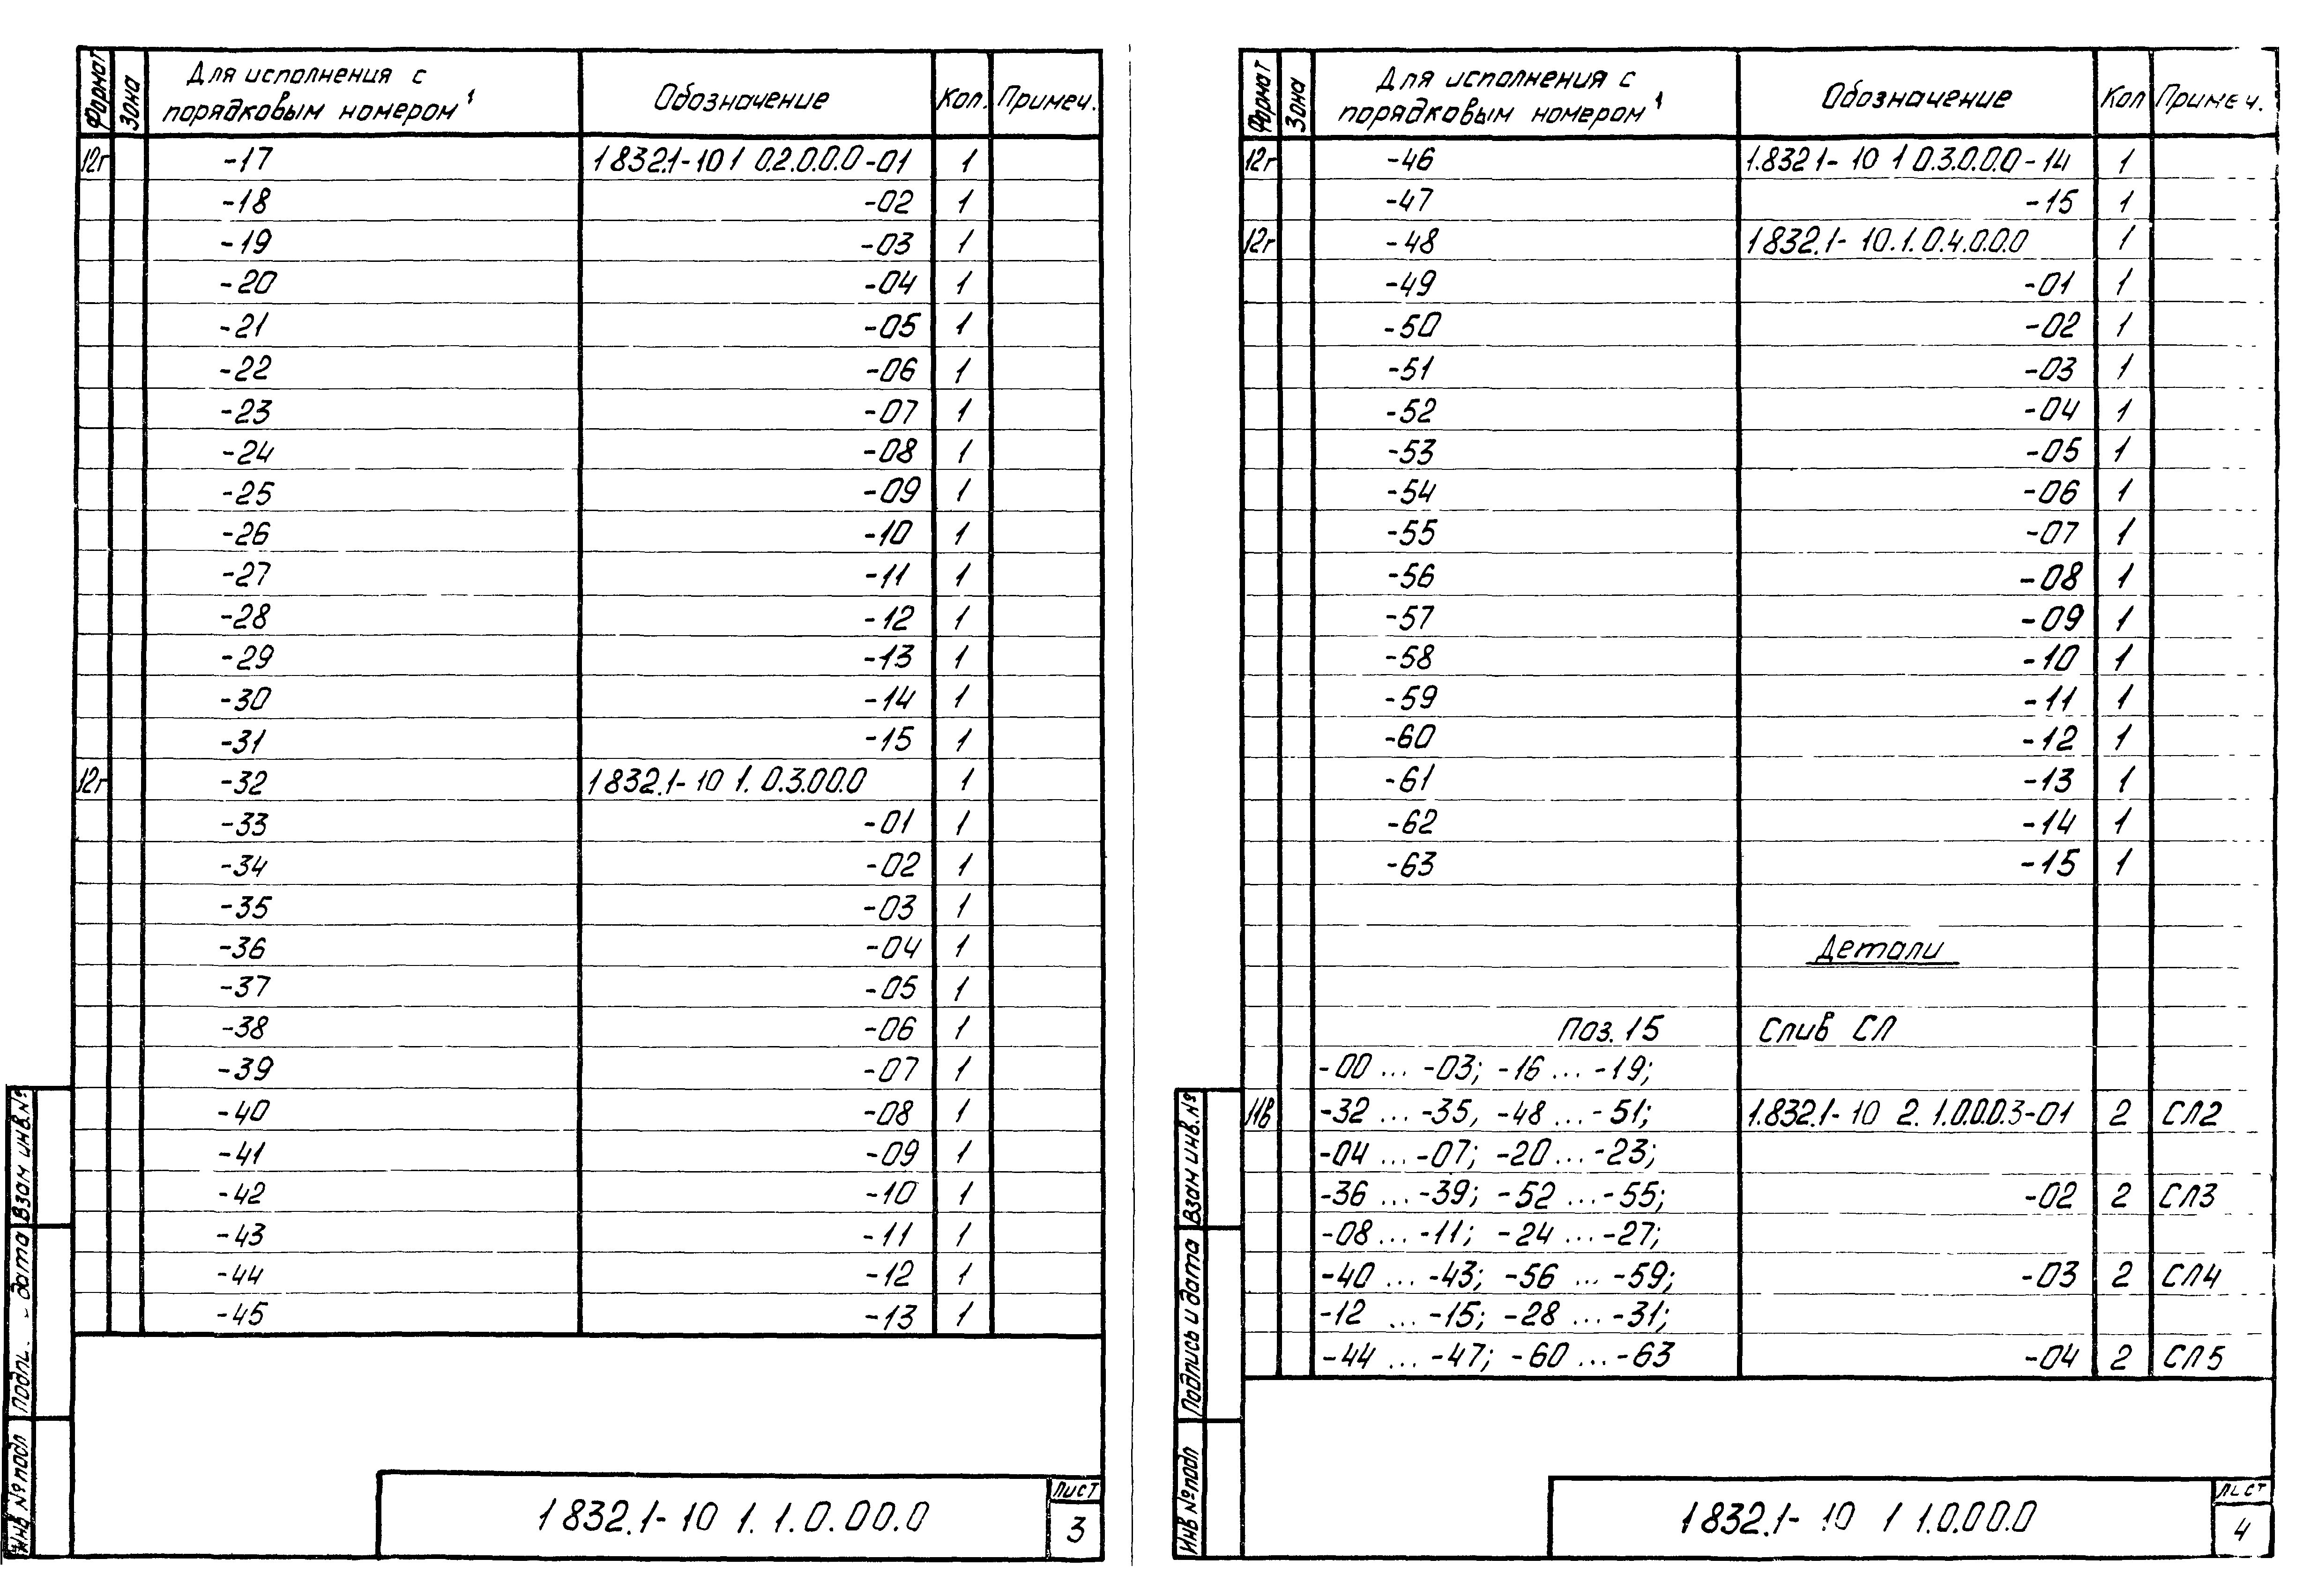 Формат Зона Для исполнения с порядковым номером¹ Обозначение Кол. Примеч.
12г -17 1 832.1-10 1 0.2.0.0.0-01 1
-18 -02 1
-19 -03 1
-20 -04 1
-21 -05 1
-22 -06 1
-23 -07 1
-24 -08 1
-25 -09 1
-26 -10 1
-27 -11 1
-28 -12 1
-29 -13 1
-30 -14 1
-31 -15 1
12г -32 1 832.1-10 1. 0.3.0.0.0 1
-33 -01 1
-34 -02 1
-35 -03 1
-36 -04 1
-37 -05 1
-38 -06 1
-39 -07 1
-40 -08 1
-41 -09 1
-42 -10 1
-43 -11 1
-44 -12 1
-45 -13 1
Взам инв.№
Подпи. - дата
Инв № подл
1 832.1-10 1. 1.0.00.0
Лист
3
Формат Зона Для исполнения с порядковым номером¹ Обозначение Кол Примеч.
12г -46 1.832 1-10 1 0.3.0.0.0-14 1
-47 -15 1
12г -48 1 832.1-10.1.0.4.0.0.0 1
-49 -01 1
-50 -02 1
-51 -03 1
-52 -04 1
-53 -05 1
-54 -06 1
-55 -07 1
-56 -08 1
-57 -09 1
-58 -10 1
-59 -11 1
-60 -12 1
-61 -13 1
-62 -14 1
-63 -15 1
Детали
Поз. 15 Слив СЛ
-00 ... -03; -16 ... -19;
11В -32 ... -35, -48 ... -51; 1.832.1-10 2. 1.0.0.0.3-01 2 СЛ2
-04 ... -07; -20 ... -23;
-36 ... -39; -52 ... -55; -02 2 СЛ3
-08 ... -11; -24 ... -27;
-40 ... -43; -56 ... -59; -03 2 СЛ4
-12 ... -15; -28 ... -31;
-44 ... -47; -60 ... -63 -04 2 СЛ5
Взам инв.№
Подпись и дата
Инв № подл
1 832.1-10 1 1.0.00.0
Лист
4